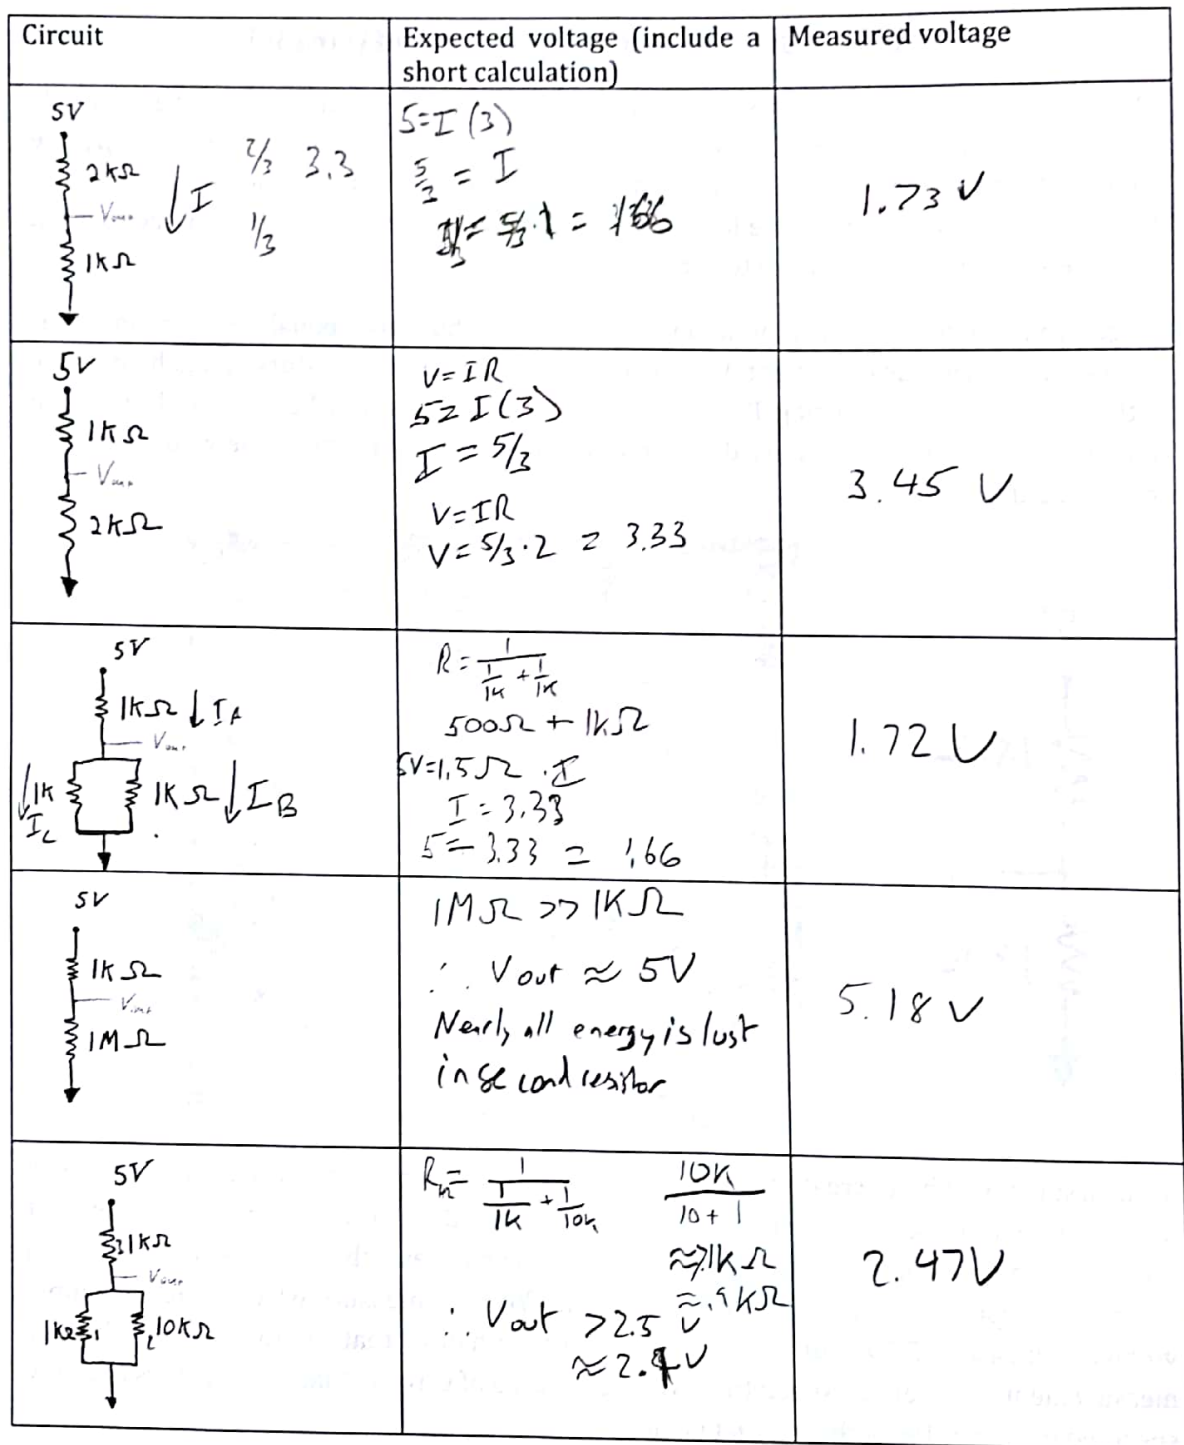 Circuit
Expected voltage (include a
short calculation)
Measured voltage
5V
2kΩ
I
2/3 3.3
Vout
1/3
1kΩ
5=I(3)
5/3 = I
5/3·1 = 1.66
1.73 V
5V
1kΩ
Vout
2kΩ
V=IR
5=I(3)
I = 5/3
V=IR
V=5/3·2 = 3.33
3.45 V
5V
1kΩ IA
Vout
1K
1KΩ IB
R = 1/(1/1k + 1/1k)
500Ω + 1kΩ
5V=1.5Ω · I
I = 3.33
5 - 3.33 = 1.66
1.72 V
5V
1kΩ
Vout
1MΩ
1MΩ >> 1KΩ
∴ Vout ≈ 5V
Nearly all energy is lost
in second resistor
5.18 V
5V
1kΩ
Vout
10kΩ
1/(1/1k + 1/10k)
10k/(10+1)
≈.9kΩ
∴ Vout >2.5 V
2.47V